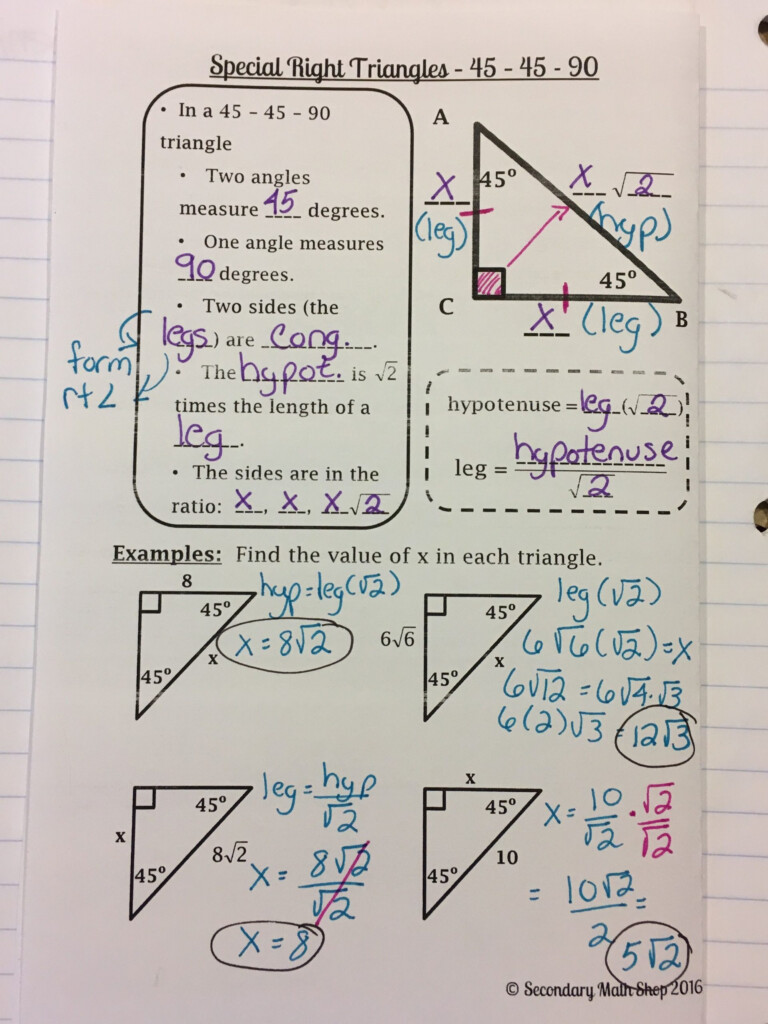 Special Right Triangles - 45 - 45 - 90
• In a 45 – 45 – 90
triangle
• Two angles
measure 45 degrees.
• One angle measures
90 degrees.
• Two sides (the
legs) are cong.
• The hypot. is √2
times the length of a
leg.
• The sides are in the
ratio: x, x, x√2
form
rt ∠
A
45°
x
(leg)
x √2
(hyp)
45°
C
x (leg)
B
hypotenuse = leg (√2)
leg = hypotenuse / √2
Examples: Find the value of x in each triangle.
8
45°
45°
x
hyp = leg(√2)
x = 8√2
6√6
45°
45°
x
leg(√2)
6√6(√2) = x
6√12 = 6√4·√3
6(2)√3 = 12√3
x
45°
45°
8√2
leg = hyp / √2
x = 8√2 / √2
x = 8
x
45°
45°
10
x = 10/√2 · √2/√2
= 10√2 / 2 =
5√2
© Secondary Math Shop 2016